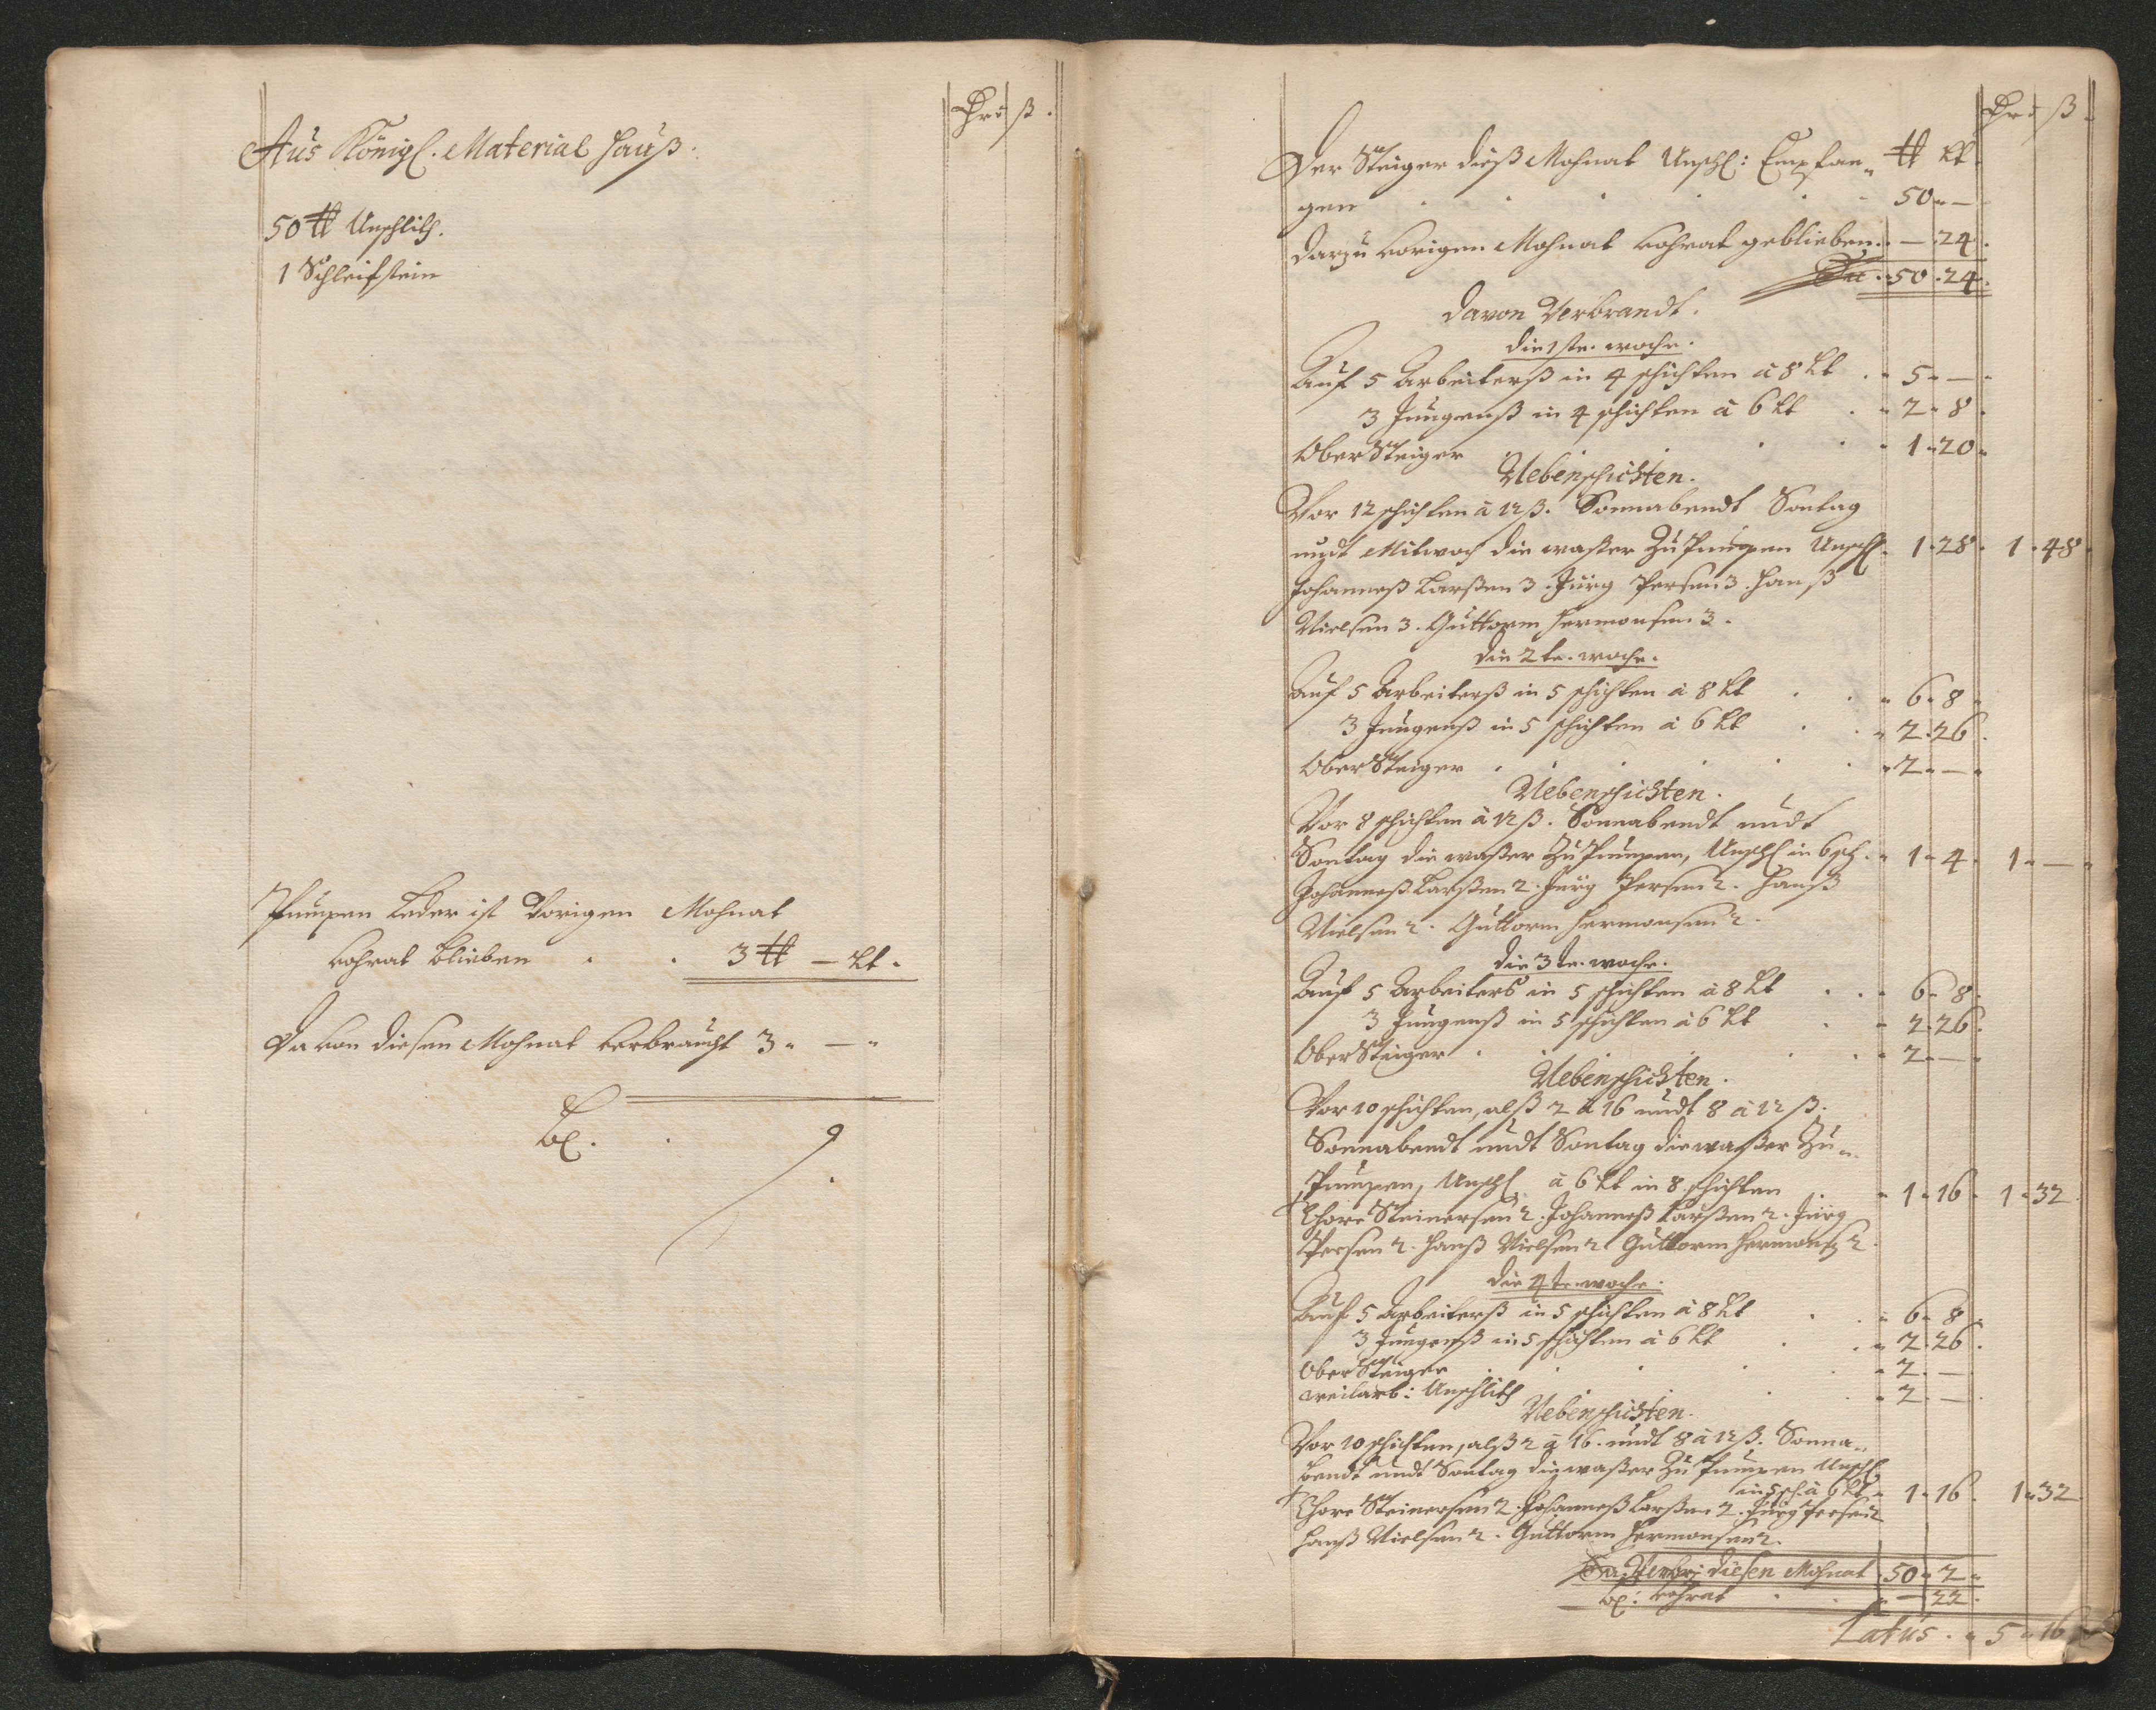 Pris ß.
Aus Königl. Material hauß.
50 ℔ Unschlith.
1 Schleifstein
Pumpen Leder ist Vorigen Mohnat
vohrat blieben . . 3 ℔ — Lt.
Da von diesen Mohnat verbraucht 3 " — "
Bl. . 9
Pris ß
Der Steiger dieß Mohnat Unschl: Empfan- ℔ Lt.
gen . . . . . 50 " —
darzu vorigen Mohnat vohrat geblieben. — . 24.
Su . 50 . 24.
davon Verbrandt.
die 1ste. woche.
Auf 5 Arbeiterß in 4 schichten à 8 Lt . " 5 " — "
3 Jungenß in 4 schichten à 6 Lt . " 2 " 8.
Ober Steiger . . . " 1 " 20 "
Uebenschichten.
Vor 12 schichten à 12 ß. Sonnabendt Sontag
undt Mitwoch die waßer Zu Pumpen Unschl. 1 . 28 . 1 . 48.
Johanneß Larßen 3. Jürg Persen 3. Hanß
Nielsen 3. Guttorm Hermonsen 3.
die 2te. woche.
Auf 5 Arbeiterß in 5 schichten à 8 Lt . . " 6 " 8 "
3 Jungenß in 5 schichten à 6 Lt . . " 2 . 26.
Ober Steiger . . . . . " 2 " — "
Uebenschichten.
Vor 8 schichten à 12 ß. Sonnabendt undt
Sontag die waßer Zu Pumpen, Unschl in 6 sch. " 1 " 4 . 1 " — "
Johanneß Larßen 2. Jürg Persen 2. Hanß
Nielsen 2. Guttorm Hermonsen 2.
die 3te. woche.
Auf 5 Arbeiters in 5 schichten à 8 Lt . . " 6 " 8.
3 Jungenß in 5 schichten à 6 Lt . " 2 . 26.
Ober Steiger . . . . " 2 " — "
Uebenschichten.
Vor 10 schichten, alß 2 à 16 undt 8 à 12 ß.
Sonnabendt undt Sontag die waßer Zu-
Pumpen, Unschl à 6 Lt in 8 schichten . " 1 " 16 " 1 " 32.
Thore Steinersen 2. Johanneß Larßen 2. Jürg
Persen 2. Hanß Nielsen 2 Guttorm Hermonsen 2.
die 4te woche.
Auf 5 Arbeiterß in 5 schichten à 8 Lt . . " 6 " 8.
3 Jungenß in 5 schichten à 6 Lt . . " 2 . 26.
Ober Steiger . . . " 2 . —
weilarb: Unschlith . . " 2 . —
Uebenschichten.
Vor 10 schichten, alß 2 à 16. undt 8 à 12 ß. Sonna-
bendt undt Sontag die waßer Zu Pumpen Unschl
in 5 sch. à 6 Lt " 1 " 16 . 1 " 32
Thore Steinersen 2. Johanneß Larßen 2. Jürg Persen 2
Hanß Nielsen 2. Guttorm Hermonsen 2.
Sa. Verbr: diesen Mohnat 50 " 2 "
Bl: vohrat . . " — 22.
Latus . " 5 " 16